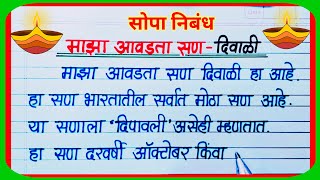 सोपा निबंध
माझा आवडता सण-दिवाळी
माझा आवडता सण दिवाळी हा आहे.
हा सण भारतातील सर्वात मोठा सण आहे.
या सणाला 'दिपावली' असेही म्हणतात.
हा सण दरवर्षी ऑक्टोबर किंवा